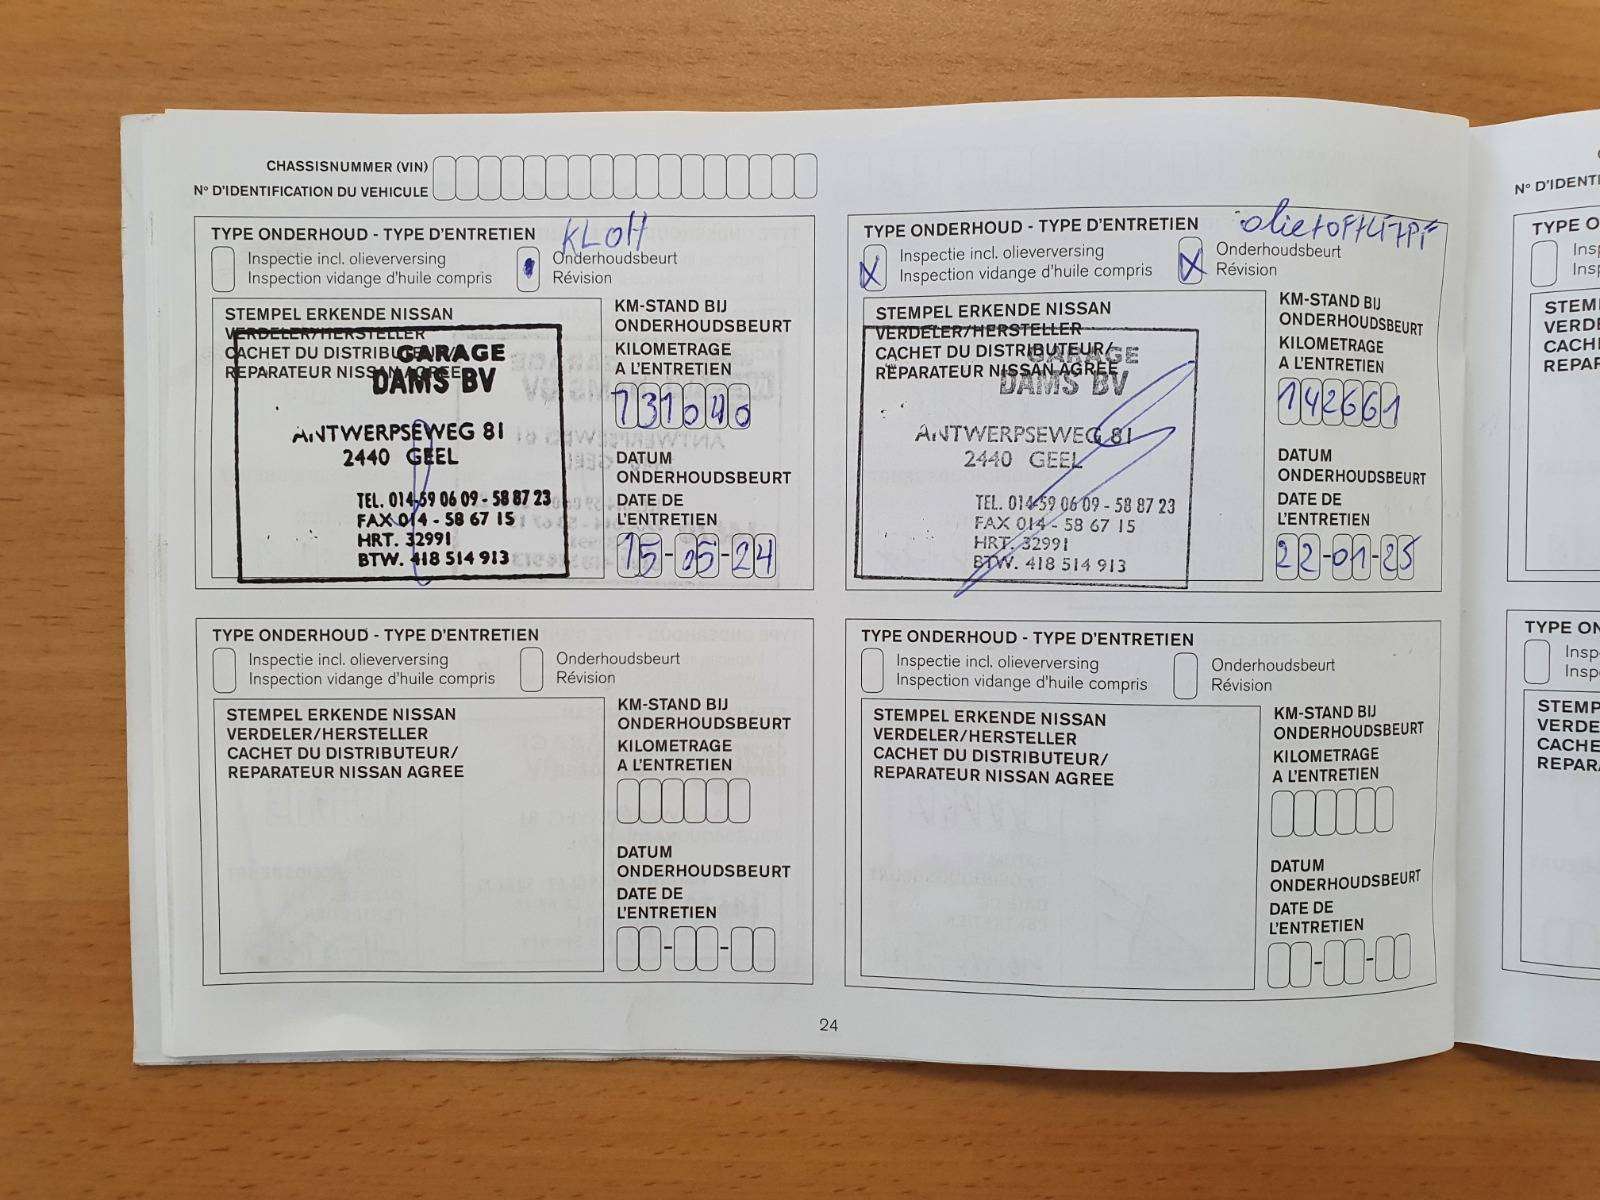 CHASSISNUMMER (VIN)
N° D'IDENTIFICATION DU VEHICULE
TYPE ONDERHOUD - TYPE D'ENTRETIEN
Inspectie incl. olieverversing
Inspection vidange d'huile compris
Onderhoudsbeurt
Révision
STEMPEL ERKENDE NISSAN
VERDELER/HERSTELLER
CACHET DU DISTRIBUTEUR/
REPARATEUR NISSAN AGREE
GARAGE
DAMS BV
ANTWERPSEWEG 81
2440 GEEL
TEL. 014-59 06 09 - 58 87 23
FAX 014 - 58 67 15
HRT. 32991
BTW. 418 514 913
KM-STAND BIJ
ONDERHOUDSBEURT
KILOMETRAGE
A L'ENTRETIEN
131040
DATUM
ONDERHOUDSBEURT
DATE DE
L'ENTRETIEN
15-05-24
TYPE ONDERHOUD - TYPE D'ENTRETIEN
X Inspectie incl. olieverversing
Inspection vidange d'huile compris
X Onderhoudsbeurt
Révision
STEMPEL ERKENDE NISSAN
VERDELER/HERSTELLER
CACHET DU DISTRIBUTEUR/
REPARATEUR NISSAN AGREE
GARAGE
DAMS BV
ANTWERPSEWEG 81
2440 GEEL
TEL. 014-59 06 09 - 58 87 23
FAX 014 - 58 67 15
HRT. 32991
BTW. 418 514 913
KM-STAND BIJ
ONDERHOUDSBEURT
KILOMETRAGE
A L'ENTRETIEN
142661
DATUM
ONDERHOUDSBEURT
DATE DE
L'ENTRETIEN
22-01-25
TYPE ONDERHOUD - TYPE D'ENTRETIEN
Inspectie incl. olieverversing
Inspection vidange d'huile compris
Onderhoudsbeurt
Révision
STEMPEL ERKENDE NISSAN
VERDELER/HERSTELLER
CACHET DU DISTRIBUTEUR/
REPARATEUR NISSAN AGREE
KM-STAND BIJ
ONDERHOUDSBEURT
KILOMETRAGE
A L'ENTRETIEN
DATUM
ONDERHOUDSBEURT
DATE DE
L'ENTRETIEN
TYPE ONDERHOUD - TYPE D'ENTRETIEN
Inspectie incl. olieverversing
Inspection vidange d'huile compris
Onderhoudsbeurt
Révision
STEMPEL ERKENDE NISSAN
VERDELER/HERSTELLER
CACHET DU DISTRIBUTEUR/
REPARATEUR NISSAN AGREE
KM-STAND BIJ
ONDERHOUDSBEURT
KILOMETRAGE
A L'ENTRETIEN
DATUM
ONDERHOUDSBEURT
DATE DE
L'ENTRETIEN
24